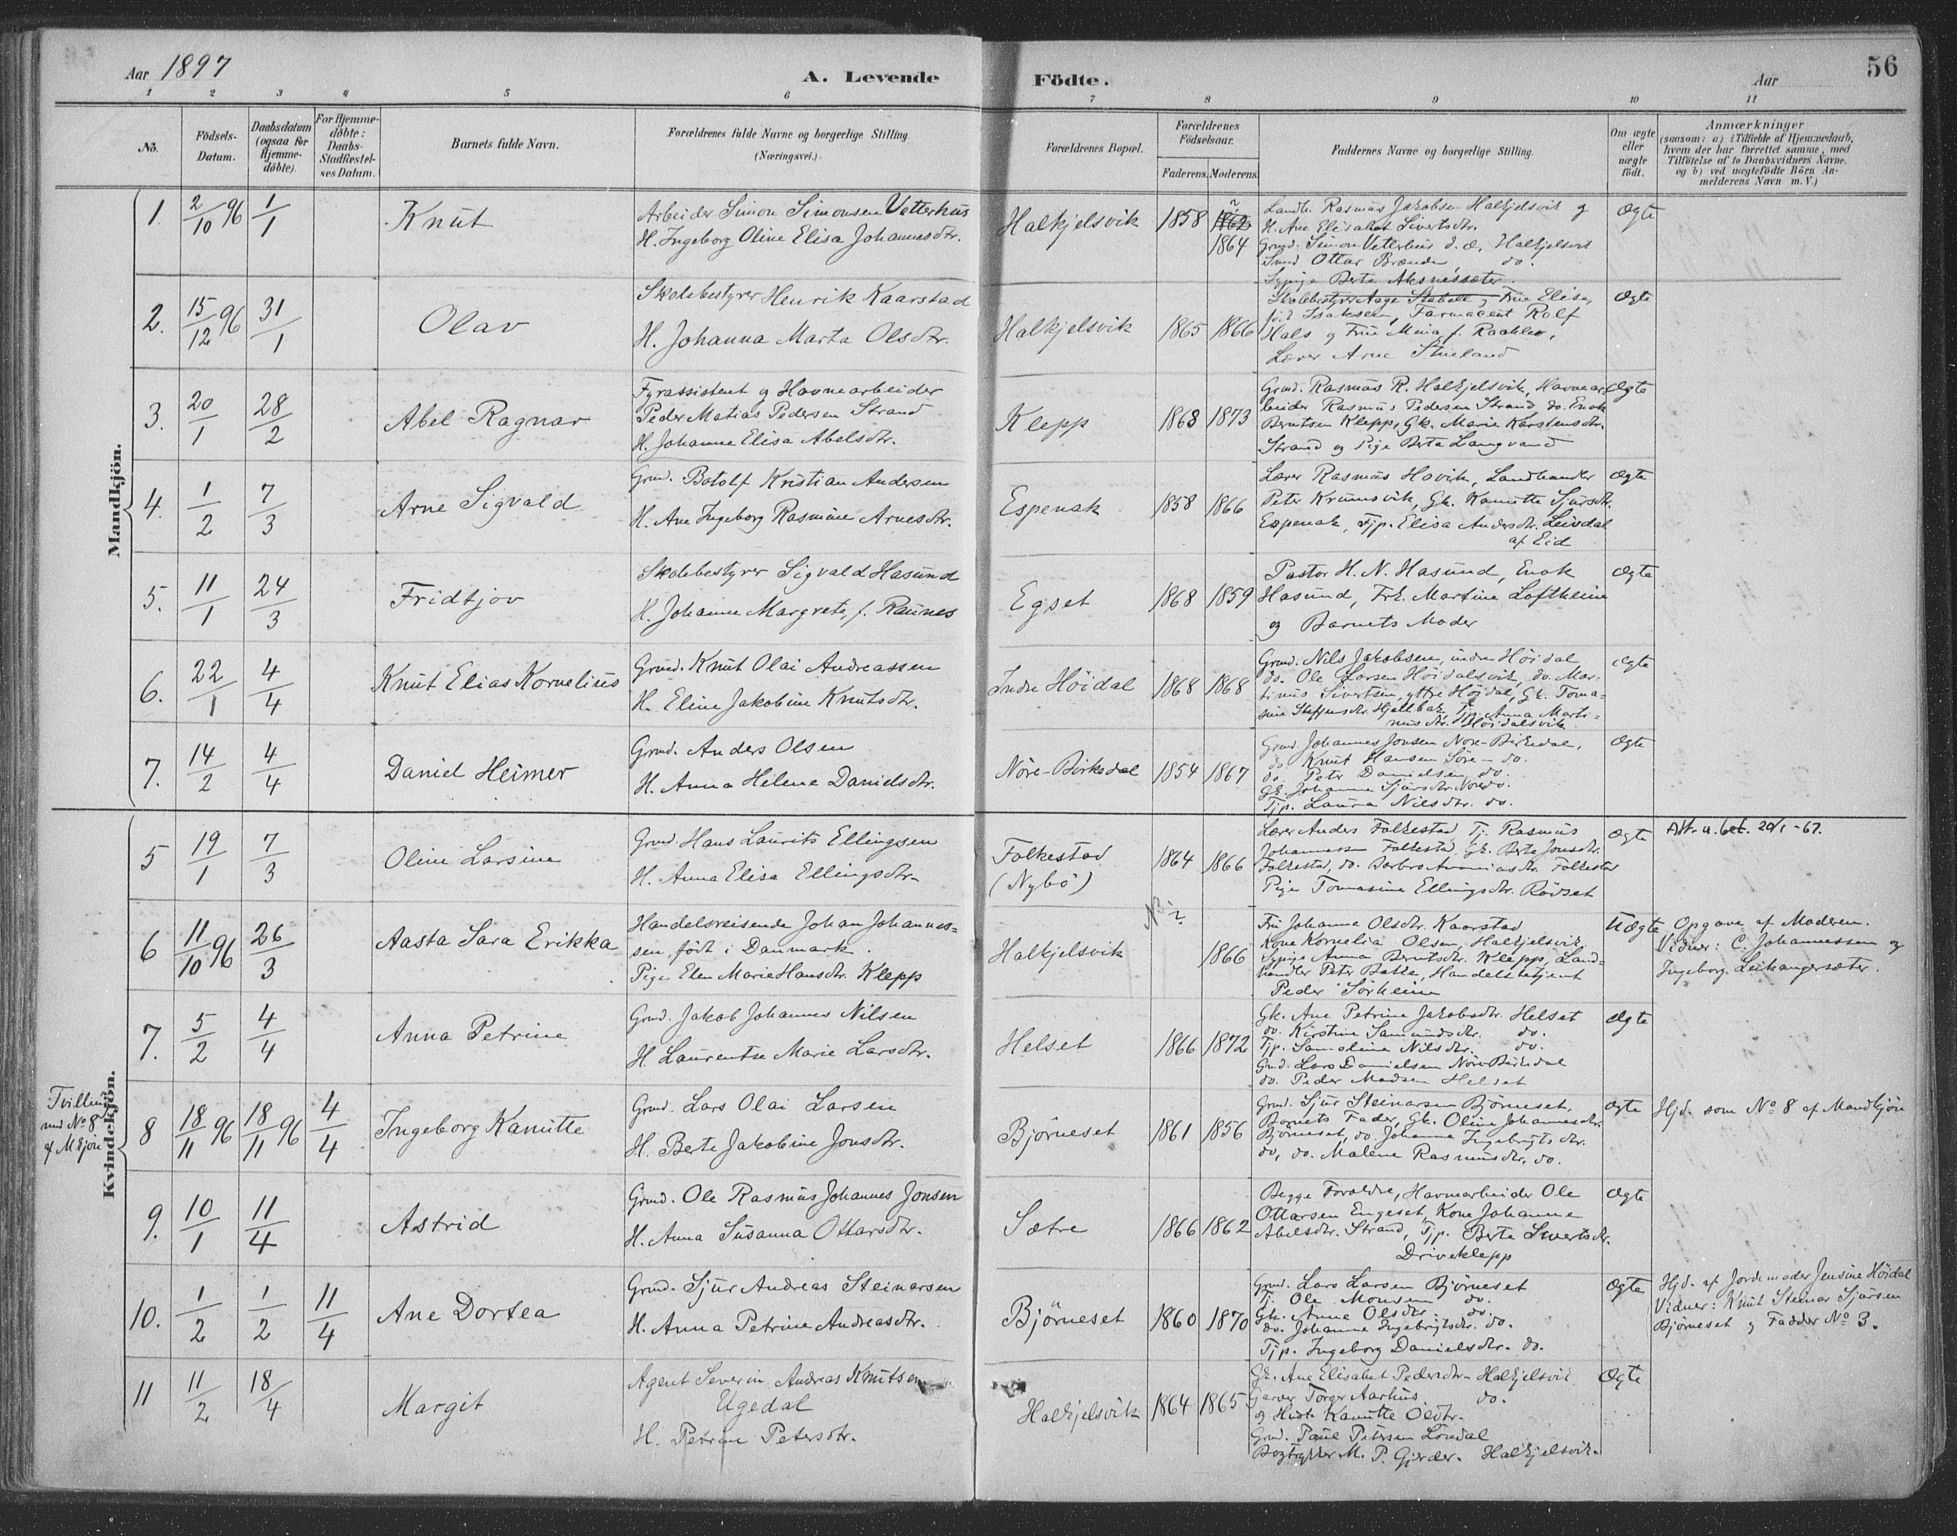 Aar 1897
A. Levende Födte.
Aar
56
1 2 3 4 5 6 7 8 9 10 11
No.
Födsels-
Datum.
Daabsdatum
(ogsaa for
Hjemme-
döbte).
For Hjemme-
döbte:
Daabs-
Stadfæstel-
ses Datum.
Barnets fulde Navn.
Forældrenes fulde Navne og borgerlige Stilling
(Næringsvei.)
Forældrenes Bopæl.
Forældrenes
Födselsaar.
Faderens. Moderens.
Faddernes Navne og borgerlige Stilling.
Om ægte
eller
uægte
födt.
Anmærkninger
(saasom: a) i Tilfælde af Hjemmedaab,
hvem der har forrettet samme, med
Tilföielse af to Daabsvidners Navne,
og b) ved uægtefödte Börn An-
melderens Navn m. V.)
Mandkjön.
1. 2/10 96 1/1
Knut
Arbeider Simon Simonsen Vatterhus
H. Ingeborg Oline Elisa Johannesdtr.
Halkjelsvik 1858 1862
1864
Landh. Rasmus Jakobsen Halkjelsvik og
H. Ane Elisabet Sivertsdtr.
Grmd. Simon Vatterhus d. æ. Halkjelsvik
Smed Ottar Brænden do.
Sypige Berte Aksnessæter.
Ægte
2. 15/12 96 31/1
Olav
Skolebestyrer Henrik Kaarstad
H. Johanna Marta Olsdtr.
Halkjelsvik 1865 1866
Skolebestyrer Aage Stabell og Frue Elise,
föd Isaksen, Farmaceut Rolf
Hals og Frue Mina f.
Lærer Arne
Ægte
3. 20/1 28/2
Abel Ragnar
Fyrassistent og Havnearbeider
Peder Matias Pedersen Strand
H. Johanne Elisa Abelsdtr.
Klepp 1868 1873
Grmd. Rasmus R. Halkjelsvik, Havnear-
beider Rasmus Pedersen Strand, do. Enok
Berntsen Klepp, Gk. Marie Karstensdtr.
Strand og Pige Berte Langvand
Ægte
4. 1/2 7/3
Arne Sigvald
Grmd. Botolf Kristian Andersen
H. Ane Ingeborg Rasmine Arnesdtr.
Espenak 1858 1866
Lærer Rasmus Hovik, Landhandler
Peter Krumsvik, Gk. Kanutte Sjursdtr.
Espenak, Tjp. Elisa Andersdtr. Leivdal
af Eid
Ægte
5. 11/1 24/3
Fridtjov
Skolebestyrer Sigvald Hasund
H. Johanne Margrete, f. Raunes
Egset 1868 1859
Pastor H. N. Hasund, Enok
Hasund, Frk. Martine Loftheim
og Barnets Moder
Ægte
6. 22/1 4/4
Knut Elias Kornelius
Grmd. Knut Olai Andreassen
H. Eline Jakobine Knutsdtr.
Indre Höidal 1868 1868
Grmd. Nils Jakobsen, indre Höidal,
do. Ole Larsen Höidalsvik, do. Mar-
tinus Sivertsen, ytfri Höidal, Gk. Toma-
sine Steffensdtr. Hjellbak, Tjp. Anna Marti-
nusdtr. Höidalsvik
Ægte
7. 14/2 4/4
Daniel Heimer
Grmd. Anders Olsen
H. Anna Helene Danielsdtr.
Nöre-Birkedal 1854 1867
Grmd. Johannes Jonsen Nöre-Birkedal,
do. Knut Hansen Söre- do.
do. Peter Danielsen, do.
Gk. Johanne Sjursdtr. Nöre do.
Tjp. Laura Nilsdtr. do.
Ægte
Kvindekjön.
5 19/1 7/3
Oline Larsine
Grmd. Hans Laurits Ellingsen
H. Anna Elisa Ellingsdtr.
Folkestad
(Nybö)
1864 1866
Lærer Anders Folkestad, Tj. Rasmus
Johannesen Folkestad, Gk. Berte Jonsdtr.
Folkestad, do. Barbro Ananiasdtr. Folkestad
Pige Tomasine Ellingsdtr. Rödset
Ægte
Att. u. bet. 20/1-67.
6 11/10 96 26/3
Aasta Sara Erikka
Handelsreisende Johan Johannes-
sen, født i Danmark.
Pige Elen Marie Hansdtr. Klepp
Halkjelsvik
N.?
1866
Fru Johanne Olsdtr. Kaarstad
Kone Kornelia Olsen, Halkjelsvik
Sypige Anna Berntsdtr. Klepp, Land-
handler Peter Bakke, Handelsbetjent
Peder Sörheim
Uægte
Opgave af Moderen.
Vidner: C. Johannessen og
Ingeborg Leikangersæter.
7. 5/2 4/4
Anna Petrine
Grmd. Jakob Johannes Nilsen
H. Laurentse Marie Larsdtr.
Helset 1866 1872
Gk. Ane Petrine Jakobsdtr. Helset
do. Kirstine Samundsdtr. do.
Tjp. Samoline Nilsdtr. do.
Grmd. Lars Danielsen Nöre Birkedal
do. Peder Madsen Helset
Ægte
Tvilling
med No 8
af Mkjön
8 18/11 96 18/11 96 4/4
Ingeborg Kanutte
Grmd. Lars Olai Larsen
H. Berte Jakobine Jonsdtr.
Bjørneset 1861 1856
Grmd. Sjur Steinarsen Bjørneset,
Barnets Fader, Gk. Oline Johannesdtr.
Bjørneset, do. Johanne Ingebrigtsdtr.
do, do. Malene Rasmusdtr. do.
Ægte
Hjd. som No 8 af Mandkjön
9. 10/1 11/4
Astrid
Grmd. Ole Rasmus Johannes Jonsen
H. Anna Susanna Ottarsdtr.
Sætre 1866 1862
Begge Forældre, Havnarbeider Ole
Ottarsen Engeset, Kone Johanne
Abelsdtr. Strand, Tjp. Berte Sivertsdtr.
Driveklepp
Ægte
10. 1/2 1/2 11/4
Ane Dortea
Grmd. Sjur Andreas Steinarsen
H. Anna Petrine Andreasdtr.
Bjørneset 1860 1870
Grmd. Lars Larsen Bjørneset
Tj. Ole Monsen do.
Gk. Anne Olsdtr. do.
do. Johanne Ingebrigtsdtr. do.
Tjp. Ingeborg Danielsdtr. do.
Ægte
Hjd. af Jordemoder Jensine Höidal
Vidner: Knut Steinar Sjursen
Bjørneset og Fadder No 3.
11 11/2 18/4
Margit
Agent Severin Andreas Knutsen
Ugedal
H. Petrine Petersdtr.
Halkjelsvik 1864 1865
Gk. Ane Elisabet Pedersdtr. Halkjelsvik
Garver Torger Aarhus, do.
og Hust. Kanutte Olsdtr.
Grmd. Paul Petersen Löndal
Bogtrykker M. P. Gjerder. Halkjelsvik.
Ægte